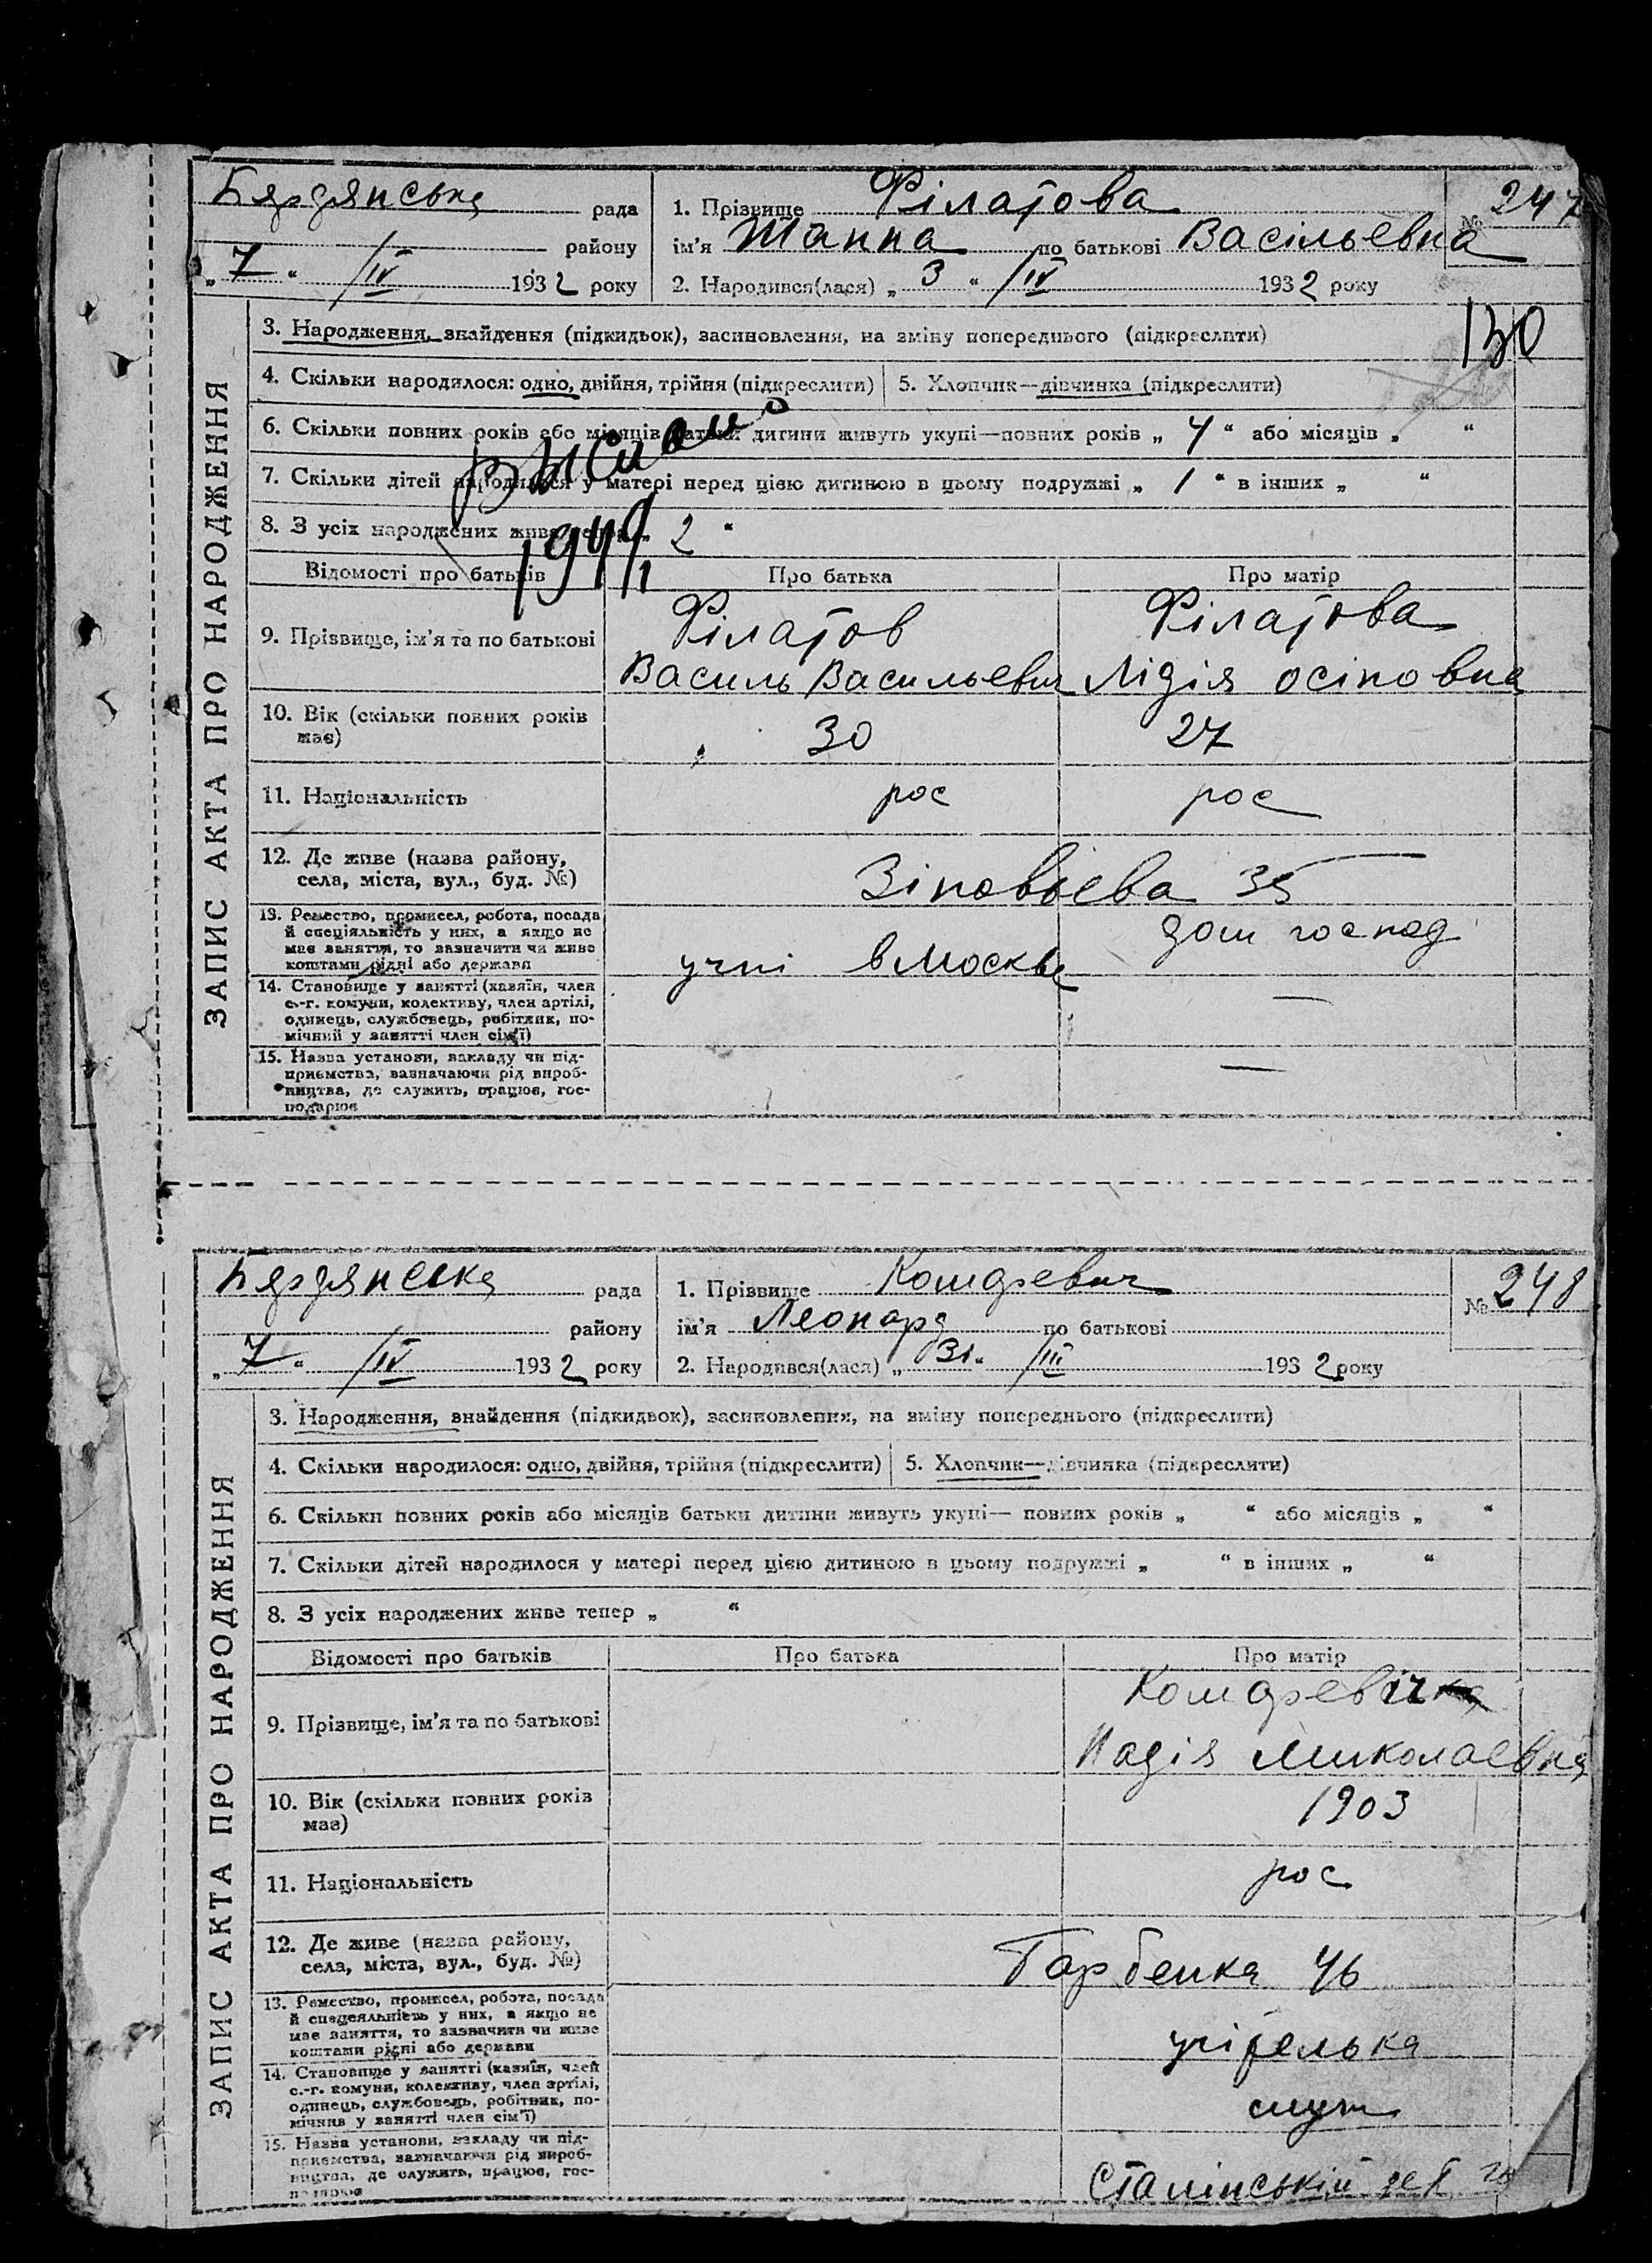 Бярдянська рада
району
„ 7 “ /IV 1932 року
1. Прізвище Філатова
ім'я Жанна по батькові Васільевна
2. Народився(лася) „ 3 “ /IV 1932 року
№ 247
130
ЗАПИС АКТА ПРО НАРОДЖЕННЯ
3. Народження, знайдення (підкидьок), засиновлення, на зміну попереднього (підкреслити)
4. Скільки народилося: одно, двійня, трійня (підкреслити) 5. Хлопчик—дівчинка (підкреслити)
6. Скільки повних років або місяців батьки дитини живуть укупі—повних років „ 4 “ або місяців „ “
7. Скільки дітей народилося у матері перед цією дитиною в цьому подружжі „ 1 “ в інших „ “
8. З усіх народжених живе тепер „ 2 “
Відомості про батьків Про батька Про матір
9. Прізвище, ім'я та по батькові
Філатов Філатова
Василь Васильевич Лідія Осіповна
10. Вік (скільки повних років має) 30 27
11. Національність рос рос
12. Де живе (назва району,
села, міста, вул., буд. №) Зіновьева 35
13. Ремество, промисел, робота, посада
й спеціяльність у них, а якщо не
має заняття, то зазначити чи живе
коштами рідні або держави
учні в Москве дом господ
14. Становище у занятті (хазяїн, член
с.-г. комуни, колективу, член артілі,
одинець, службовець, робітник, по-
мічний у занятті член сім'ї) —
15. Назва установи, закладу чи під-
приємства, зазначаючи рід вироб-
ництва, де служить, працює, гос-
подарює —
Бярдянська рада
району
„ 7 “ /IV 1932 року
1. Прізвище
ім'я Леонард по батькові
2. Народився(лася) „ 31 “ /III 1932 року
№ 248
ЗАПИС АКТА ПРО НАРОДЖЕННЯ
3. Народження, знайдення (підкидьок), засиновлення, на зміну попереднього (підкреслити)
4. Скільки народилося: одно, двійня, трійня (підкреслити) 5. Хлопчик—дівчинка (підкреслити)
6. Скільки повних років або місяців батьки дитини живуть укупі— повних років „ “ або місяців „ “
7. Скільки дітей народилося у матері перед цією дитиною в цьому подружжі „ “ в інших „ “
8. З усіх народжених живе тепер „ “
Відомості про батьків Про батька Про матір
9. Прізвище, ім'я та по батькові
Надія Миколаевна
10. Вік (скільки повних років
має) 1903
11. Національність рос
12. Де живе (назва району,
села, міста, вул., буд. №) 46
13. Ремество, промисел, робота, посада
й спецеяльність у них, а якщо не
має заняття, то зазначити чи живе
коштами рідні або держави
учітелька
14. Становище у занятті (хазяїн, член
с.-г. комуни, колективу, член артілі,
одинець, службовець, робітник, по-
мічний у занятті член сім'ї)
служ
15. Назва установи, закладу чи під-
приємства, зазначаючи рід вироб-
ництва, де служить, працює, гос-
подарює
Сталінській